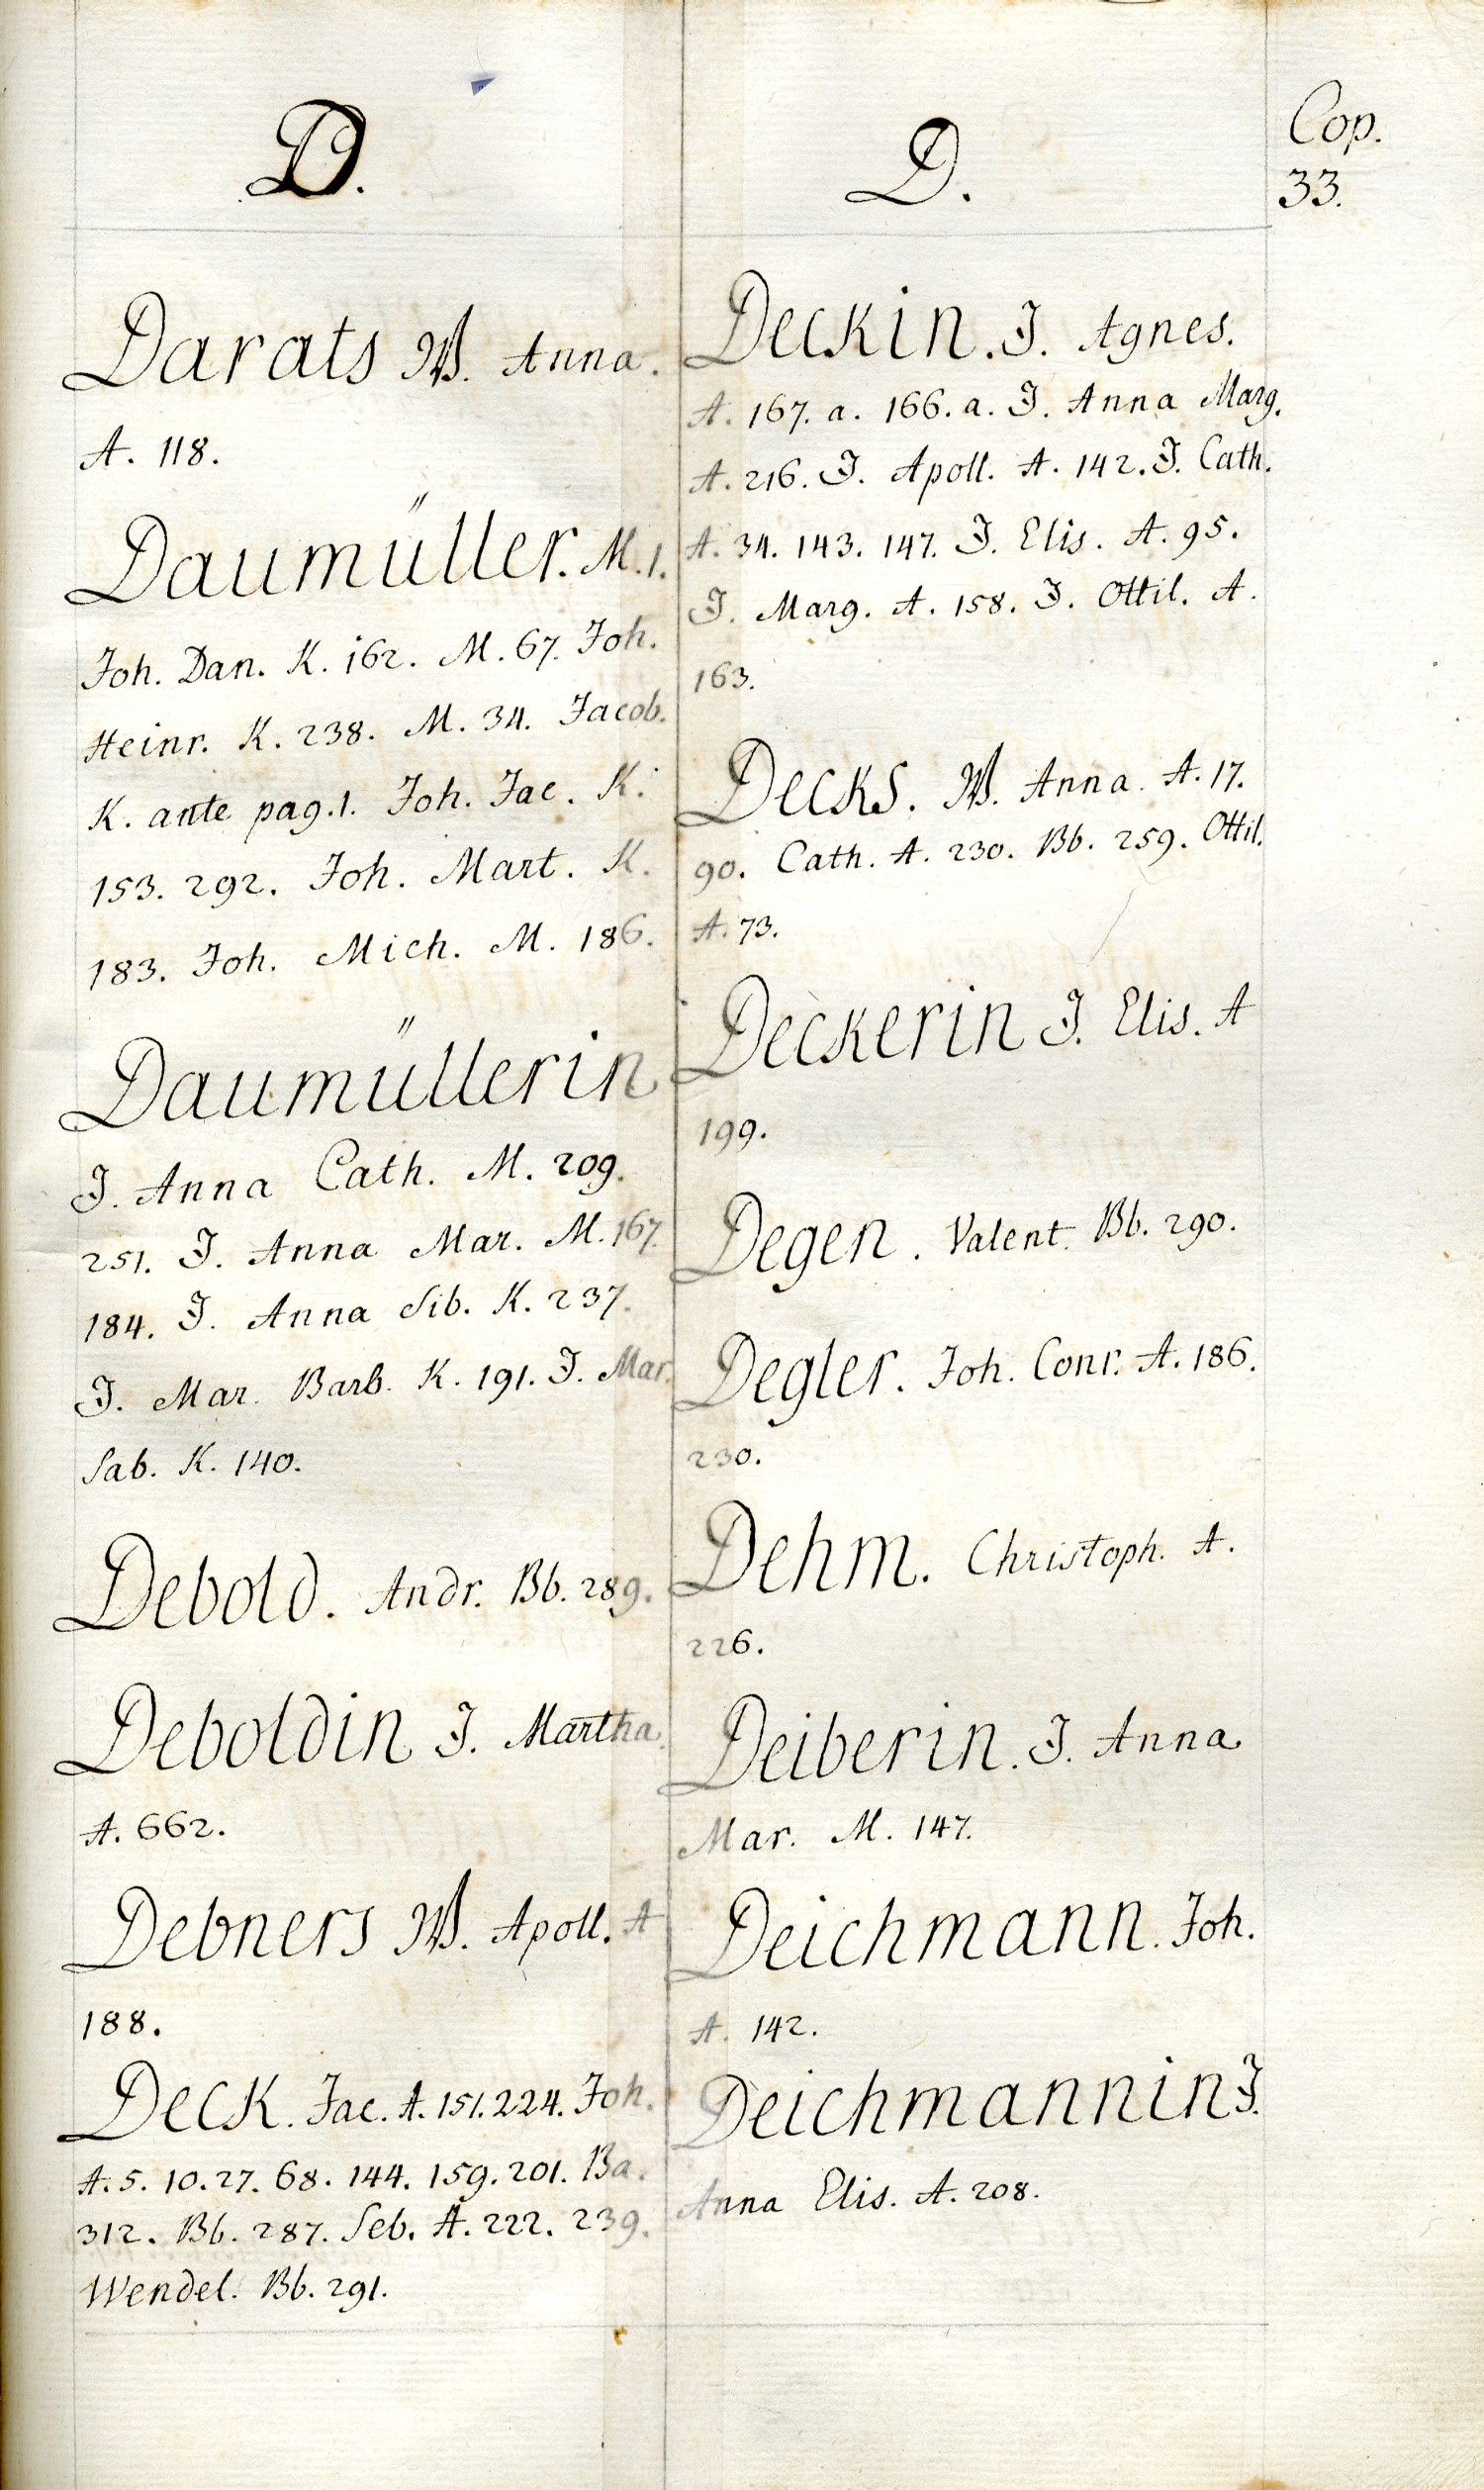 D.
Darats W. Anna.
A. 118.
Daumüller. M. 1.
Joh. Dan. K. 162. M. 67. Joh.
Heinr. K. 238. M. 34. Jacob.
K. ante pag. 1. Joh. Jac. K.
153. 292. Joh. Mart. K.
183. Joh. Mich. M. 186.
Daumüllerin
J. Anna Cath. M. 209.
251. J. Anna Mar. M. 167.
184. J. Anna Sib. K. 237.
J. Mar. Barb. K. 191. J. Mar.
Sab. K. 140.
Debold. Andr. Bb. 289.
Deboldin J. Martha.
A. 662.
Debners W. Apoll. A
188.
Deck. Jac. A. 151. 224. Joh.
A. 5. 10. 27. 68. 144. 159. 201. Ba.
312. Bb. 287. Seb. A. 222. 239.
Wendel. Bb. 291.
D.
Deckin. J. Agnes.
A. 167. a. 166. a. J. Anna Marg.
A. 216. J. Apoll. A. 142. J. Cath.
A. 34. 143. 147. J. Elis. A. 95.
J. Marg. A. 158. J. Ottil. A.
163.
Decks. W. Anna. A. 17.
90. Cath. A. 230. Bb. 259. Ottil.
A. 73.
Deckerin J. Elis. A
199.
Degen. Valent. Bb. 290.
Degler. Joh. Conr. A. 186.
230.
Dehm. Christoph. A.
226.
Deiberin. J. Anna
Mar. M. 147.
Deichmann. Joh.
A. 142.
Deichmannin J.
Anna Elis. A. 208.
Cop.
33.